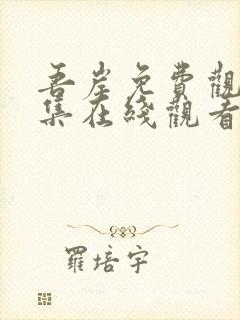 吾岸免費觀
集在綫觀看
羅培宇